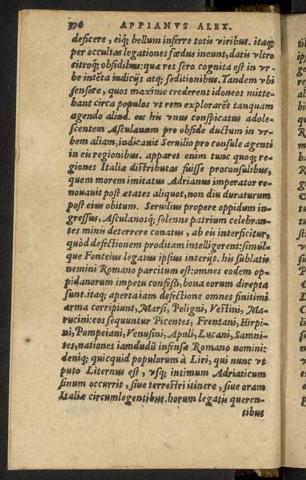 376 APPIANVS ALEX.
deficere, eiq́; bellum inferre totis viribus. itaq́;
per occultas legationes fœdus ineunt, datis vltro
citroq́; obsidibus: quæ res sero cognita est in vr-
be intẽta iudicijs atq; seditionibus. Tandem vbi
sensere, quos maxime crederent idoneos mitte-
bant circa populos vt rem explorarẽt tanquam
agendo aliud. ex his vnus conspicatus adole-
scentem Asculanum pro obside ductum in vr-
bem aliam, iudicauit Seruilio pro consule agenti
in eis regionibus. apparet enim tunc quoq; re-
giones Italiæ distributas fuisse proconsulibus,
quem morem imitatus Adrianus imperator re-
nouauit post ætates aliquot, non diu duraturum
post eius obitum. Seruilius propere oppidum in-
gressus, Asculanosq́; solenne patrium celebran-
tes minis deterrere conatus, ab eis interficitur,
quòd defectionem proditam intelligerent: simúl-
que Fonteius legatus ipsius interijt. his sublatis
nemini Romano parcitum est: omnes eodem op-
pidanorum impetu confossi, bona eorum direpta
sunt. itaq; apertaiam defectione omnes finitimi
arma corripiunt, Marsi, Peligni, Vestini, Ma-
rucini: eos sequuntur Picentes, Frentani, Hirpi-
ni, Pompeiani, Venusini, Apuli, Lucani, Samni-
tes, nationes iamdudũ infensæ Romano nomini:
deniq; quicquid populorum à Liri, qui nunc vt
puto Liternus est, vsq; intimum Adriaticum
sinum occurrit, siue terrestri itinere, siue oram
Italiæ circumlegentibus. horum legatis queren-
tibus